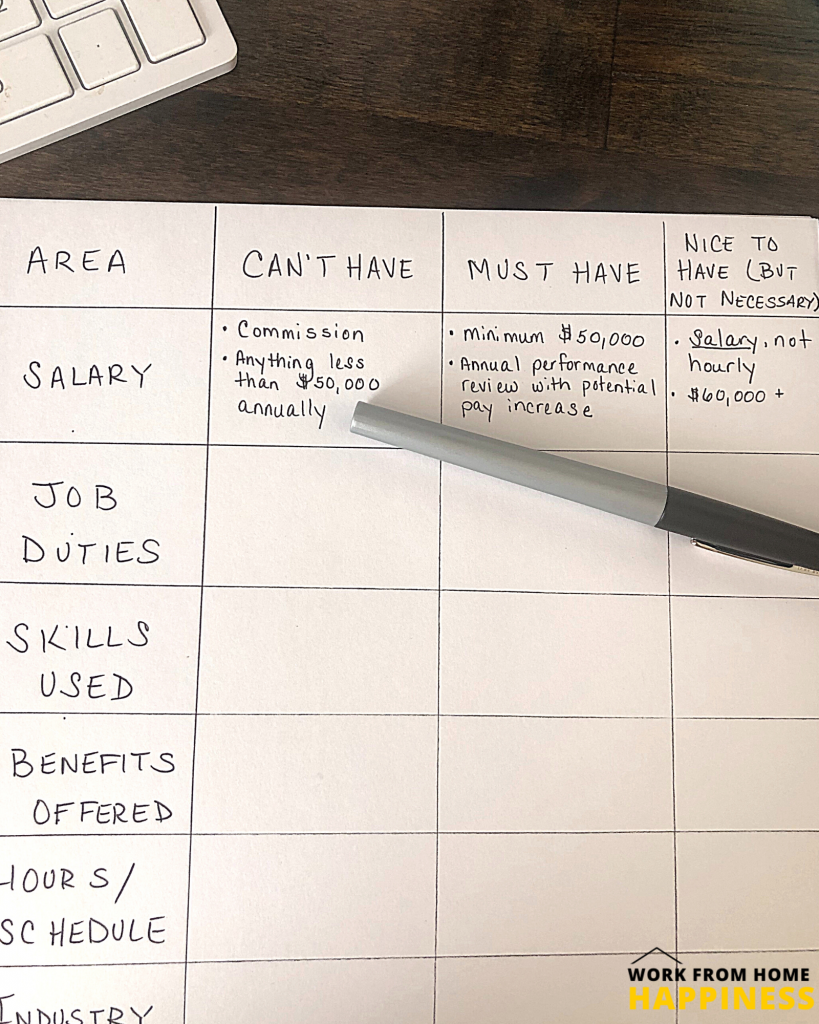 AREA
CAN'T HAVE
MUST HAVE
NICE TO
HAVE (BUT
NOT NECESSARY)
SALARY
• Commission
• Anything less
than $50,000
annually
• minimum $50,000
• Annual performance
review with potential
pay increase
• Salary, not
hourly
• $60,000 +
JOB
DUTIES
SKILLS
USED
BENEFITS
OFFERED
HOURS/
SCHEDULE
INDUSTRY
WORK FROM HOME
HAPPINESS